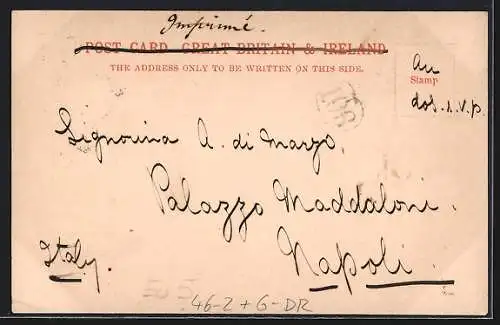 Imprimé.
POST CARD, GREAT BRITAIN & IRELAND
THE ADDRESS ONLY TO BE WRITTEN ON THIS SIDE.
Au
Stamp
dos. s.v.p.
Signorina A. di Marzo,
Palazzo Maddaloni.
Italy. Napoli.
46-2+6-DR